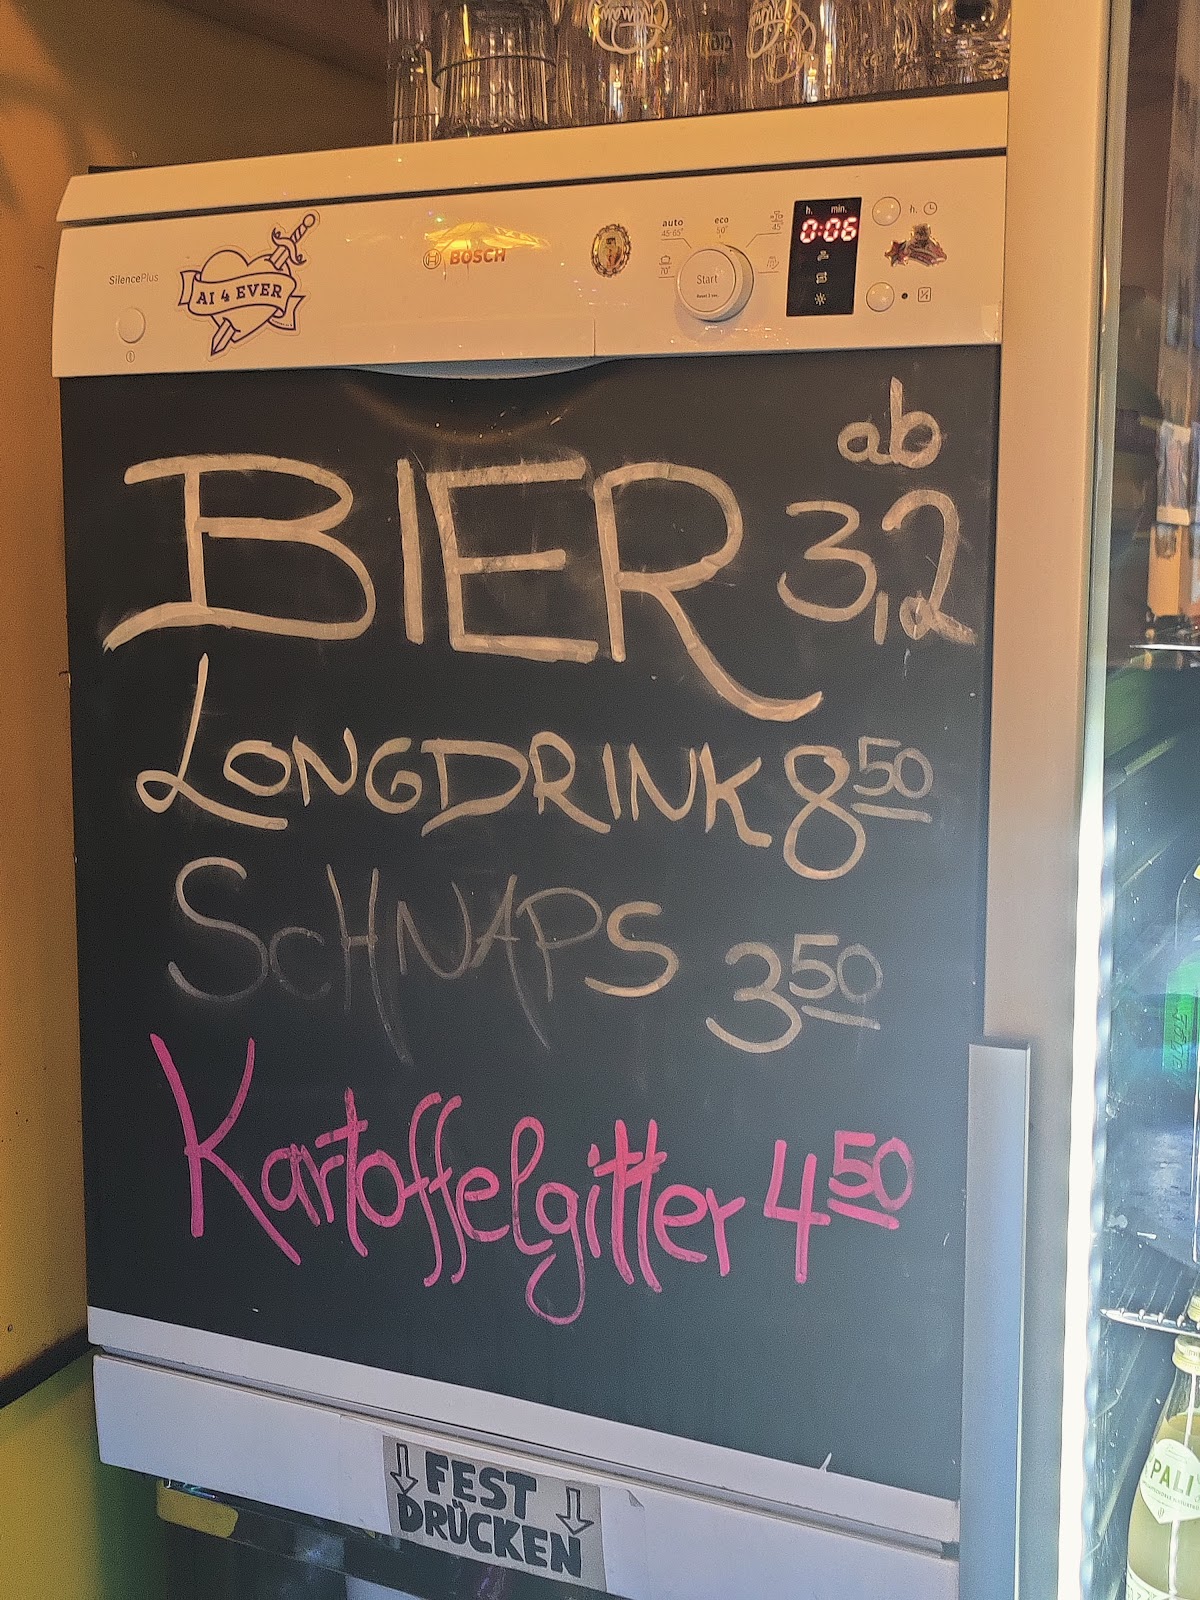 SilencePlus
AI 4 EVER
BOSCH
auto
45-65°
eco
50°
45°
70°
Start
Reset 3 sec.
h. min.
0:06
h.
ab
BIER 3,2
LONGDRINK 8 50
SCHNAPS 3 50
Kartoffelgitter 4 50
↓ FEST
DRÜCKEN ↓
PALI